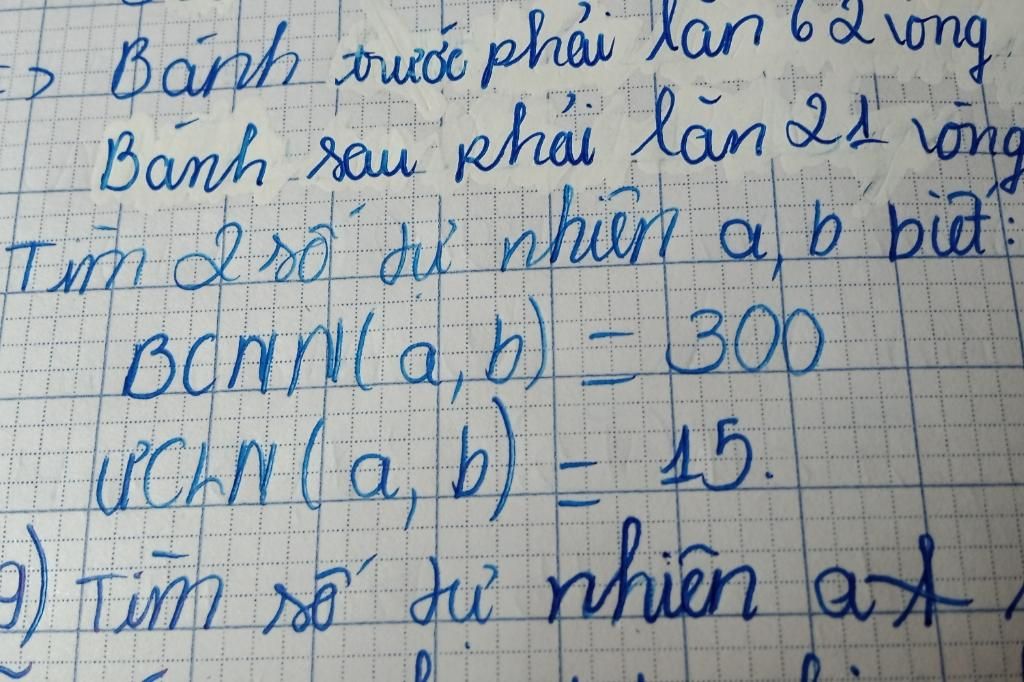 => Bánh trước phải lăn 62 vòng
Bánh sau phải lăn 21 vòng
Tìm 2 số tự nhiên a, b biết:
BCNN(a, b) = 300
ƯCLN(a, b) = 15.
9) Tìm số tự nhiên a